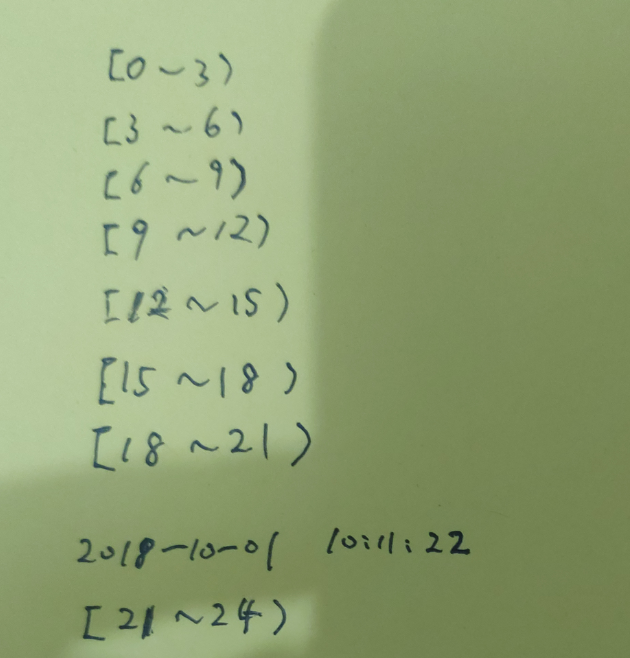 [0~3)
[3~6)
[6~9)
[9~12)
[12~15)
[15~18)
[18~21)
2018-10-01 10:11:22
[21~24)